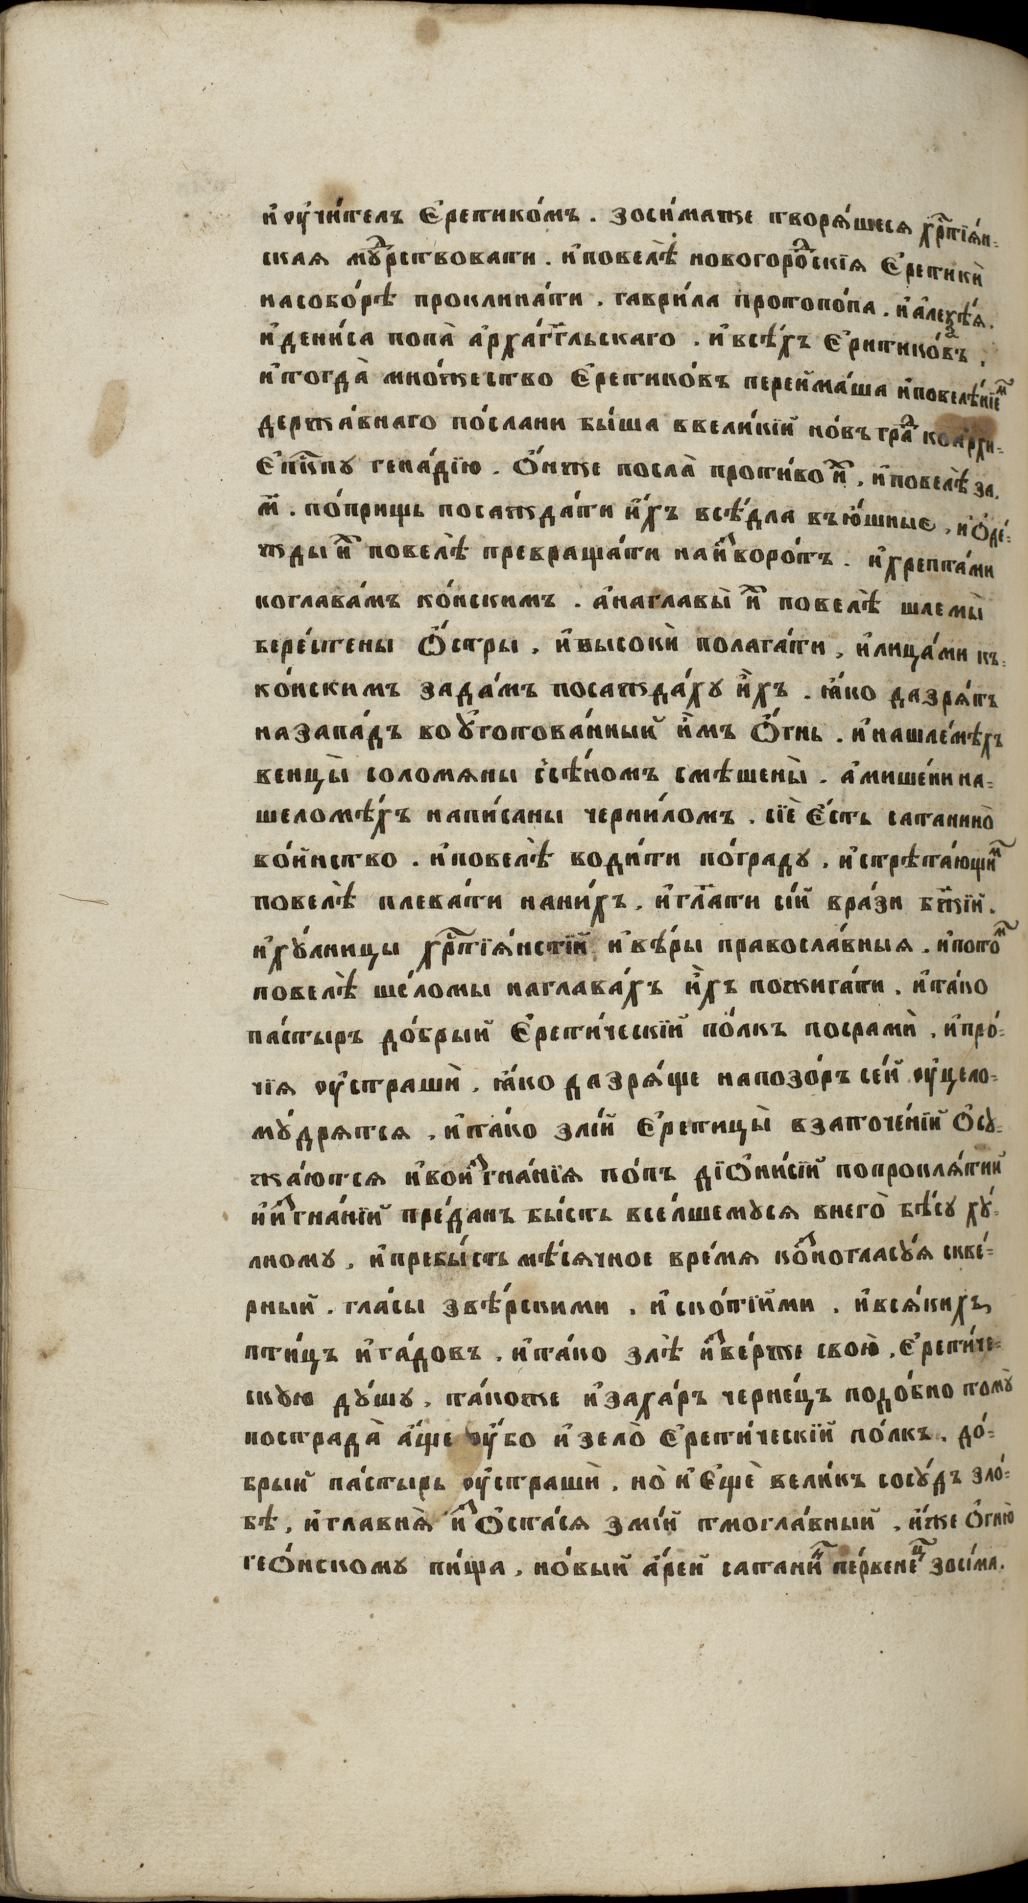 и҆ оу҆чи́телъ є҆ретико́мъ . зоси́матже творѧ́шесѧ хрⷭ҇тїѧ́н-
скаѧ мꙋⷣрствовати . и҆повелѣ̀ новогороⷣскїѧ є҆ретикѝ
насобо́рѣ проклина́ти . гаври́ла протопо́па . и҆але́ѯѣѧ .
и҆дени́са попа̀ а҆рха́гг҃льскаго . и҆всѣ́хъ є҆ритико́въ .
и҆тогда̀ мно́жество є҆ретико́въ перейма́ша и҆повелѣ́нїеⷨ
держа́внаго по́слани бы́ша ввели́кїй но́въ граⷣ коа҆рхи-
є҆пⷭ҇кпꙋ гена́дїю . ѻ҆́нже посла̀ проти́во иⷯ . и҆повелѣ̀ за .
м҃ . по́прищь посажда́ти и҆́хъ всѣ́дла въю҆́шные . и҆ѻ҆де́-
жды иⷯ повелѣ̀ превраща́ти наиⷥворо́тъ . и҆хрепта́ми
коглава́мъ ко́нскимъ . а҆наглавы̀ иⷯ повелѣ̀ шлемы̀
бере́стены ѻ҆́стры . и҆высокѝ полага́ти . и҆лица́ми къ-
ко́нскимъ зада́мъ посажда́хꙋ и҆̀хъ . ꙗ҆́ко дазрѧ́тъ
назапа́дъ воу҆гото́ванный и҆̀мъ ѻ҆́гнь . и҆нашле́мѣхъ
венцы̀ соломѧны с̾сѣ́номъ смѣшены̀ . а҆мише́ни на-
шеломѣ́хъ напи́саны черни́ломъ . сїѐ є҆́сть сатанино̀
во́йнство . и҆повелѣ̀ води́ти по́градꙋ . и҆стрѣта́ющиⷨ
повелѣ̀ плева́ти нани́хъ . и҆гл҃ати сі́й вра́зи бж҃їй .
и҆хꙋ́лницы хрⷭ҇тїѧ́нстїй и҆вѣ́ры правосла́вныѧ . и҆пото́ⷨ
повелѣ̀ ше́ломы наглава́хъ и҆̀хъ пожига́ти . и҆та́ко
па́стыръ до́брый є҆рети́ческїй по́лкъ посрамѝ . и҆про́-
чїѧ оу҆страшѝ . ꙗ҆́ко дазрѧ́ще напозо́ръ се́й оу҆цело-
мꙋ́дрѧтсѧ . и҆та́ко злі́й є҆ретицы̀ взаточе́нїй ѻ҆сꙋ-
жа́ютсѧ и҆воиⷥгна́нїѧ по́пъ дїѻ҆ни́сїй попроклѧ́тий
и҆иⷥгна́нїй пре́данъ бы́сть все́лшемꙋсѧ внего̀ бѣ́сꙋ хꙋ́-
лномꙋ . и҆пребы́сть мѣ́сѧчное вре́мѧ ко́ⷥногласꙋ́ѧ скве́-
рный . гла́сы звѣ́рскими . и҆ско́тїйми . и҆всѧ́кихъ
пти́цъ и҆га́довъ . и҆та́ко злѣ̀ иⷥве́рже свою̀ . є҆рети́че-
скꙋю дꙋ́шꙋ . та́коже и҆заха́ръ черне́цъ подо́бно томꙋ̀
пострада̀ а҆́ще оу҆́бо и҆зело̀ є҆рети́ческїй по́лкъ . до́-
брый па́стырь оу҆страшѝ . но̀ и҆є҆щѐ вели́къ сосꙋ́дъ зло́-
бѣ . и҆главнѧ̀ иⷥѻ҆ста́сѧ змі́й тмогла́вный . и҆́же ѻ҆гню̀
геѻ҆́нскомꙋ пи́ща . но́вый а҆́рей сатаниⷩ҇ пе́рвенеⷰ҇ зоси́ма .